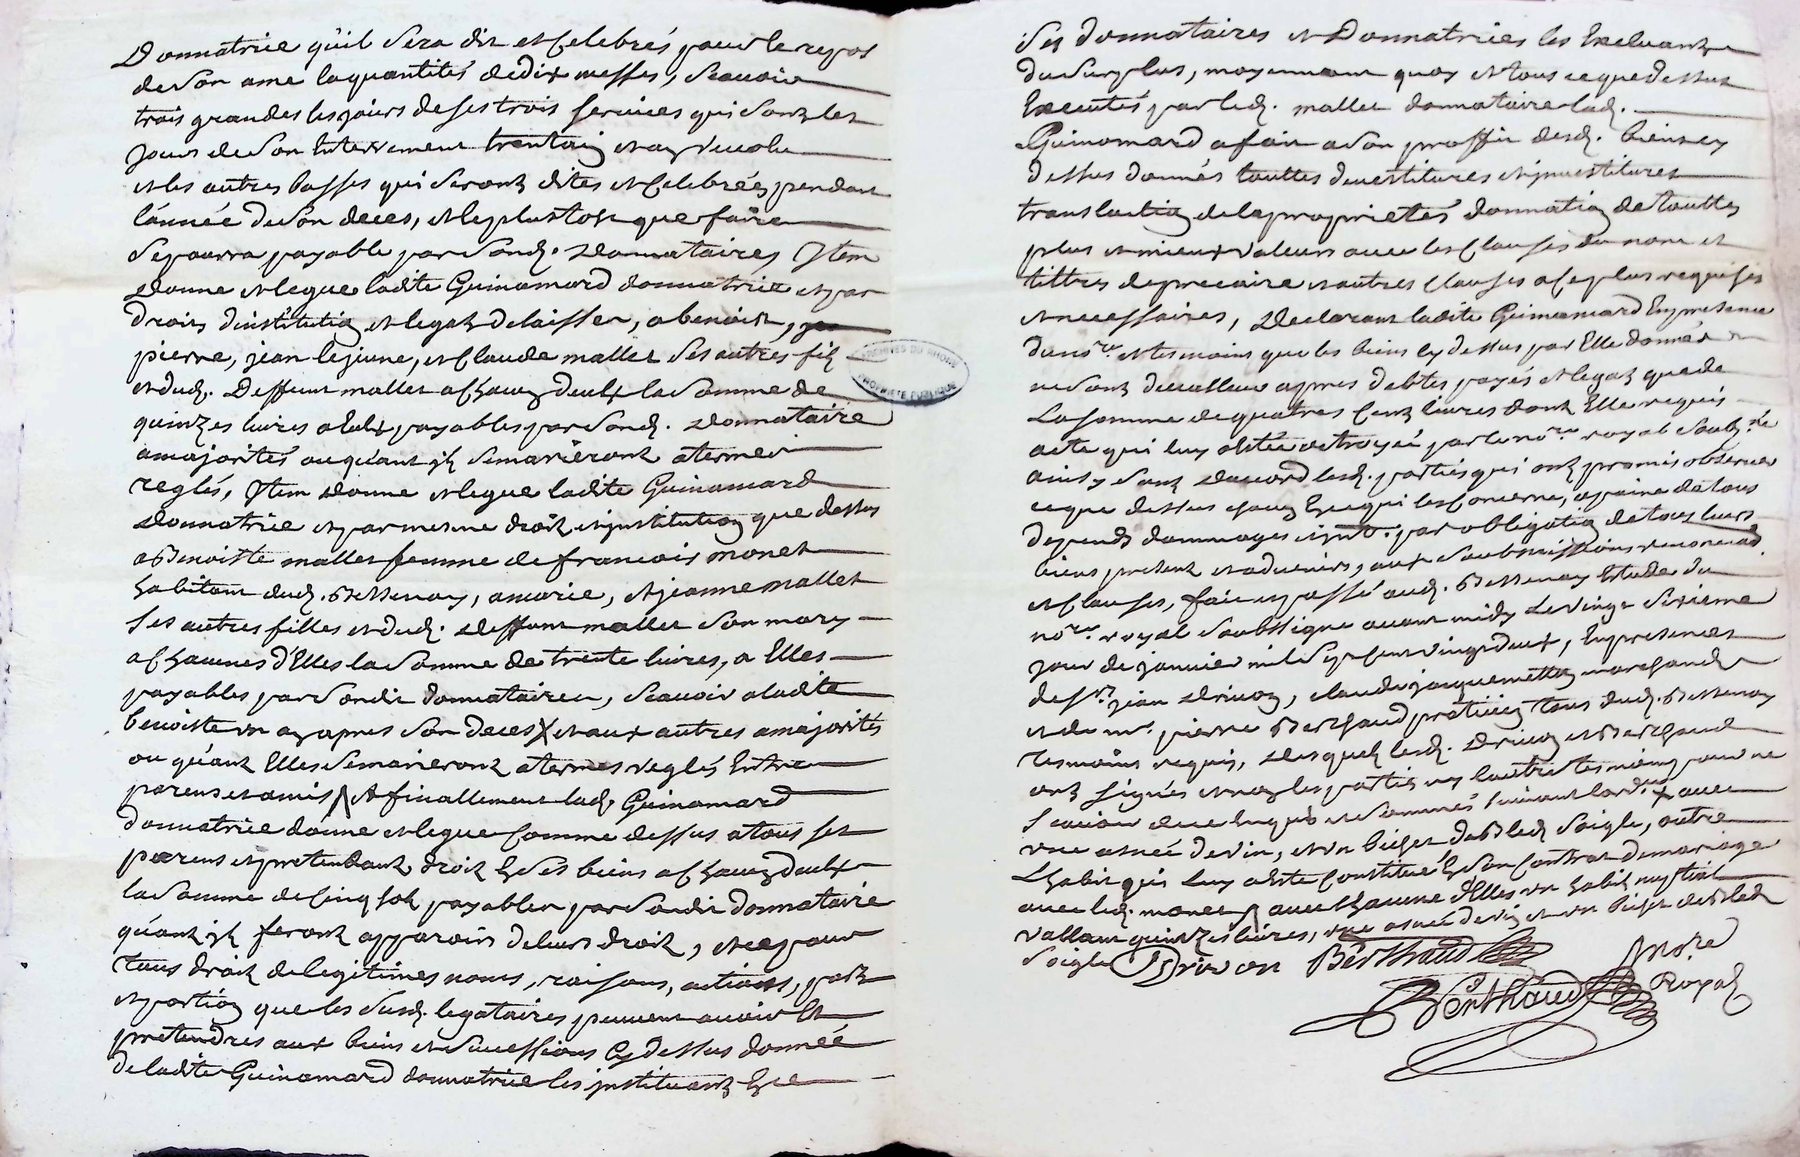 Donnatrice qu'il sera dit et celebrés pour le repos
de son ame la quantités de dix messes, scavoir
trois grandes les jours de ses trois services qui sont les
jours de son enterrement trentain et an revolu
et les autres basses qui seront dites et celebrées pendant
l'année de son deces, et le plustost que faire
se pourra payable par sond. donnataires Item
donne et legue ladite Guinamard donnatrice et par
droits d'institution et legat delaisser, a benoist,
pierre, jean le jeune, et Claude mallet ses autres fils
et dud. deffunt mallet a chacun d'eulx la somme de
quinzes livres a eulx payables par sond. donnataire
a majorités ou quant ils se marieront a termes
reglés, Item donne et legue ladite Guinamard
donnatrice et par mesme droit et institution que dessus
a Benoiste mallet femme de francois monet
habitant dud. Bessenay, a marie, et jeanne mallet
ses autres filles et dud. deffunt mallet son mary
a chacunes d'Elles la somme de trente livres, a Elles
payables par sondit donnataire, scavoir a ladite
benoiste un an apres son deces X et aux autres a majorités
ou quant Elles se marieront a termes reglés Entre
parens et amis, Et finallement lad. Guinamard
donnatrice donne et legue comme dessus a tous ses
parens et pretendants droit en ses biens a chacun d'eulx
la somme de cinq sols payables par sondit donnataire
quant ils feront apparoir de leurs droit, et ce pour
tous droit de legitimes noms, raisons, actions, part
et portion que les susd. legataires peuvent avoir et
pretendres aux biens et successions cy dessus donnée
de ladite Guinamard donnatrice les instituant en ce
ses donnataires et donnatrices les Excluant
du surplus, moyennant quoy et tous ce que dessus
Executés par led. mallet donnataire lad.
Guinamard a fait a son proffit desd. biens cy
dessus donnés touttes devestitures et investitures
translation de la proprietés donnation de touttes
plus et mieux valeurs avec les clauses du nom et
tittres de precaire et autres clauses a ce plus requises
et necessaires, declarant ladite Guinamard En presence
du no.re et tesmoins que les biens cy dessus par Elle donnés
ne sont de valleur apres debtes payés et legats que de
la somme de quatres cent livres dont Elle requis
acte qui luy a esté octroyée par le no.re royal soubs.né
ainsy sont d'accord lesd. parties qui ont promis observer
ce que dessus chacun En ce qui les concerne, a paine de tous
depends dommages et int. par obligation de tous leurs
biens present et advenirs, aux soubmissions renonciaõn
et clauses, fait et passé aud. Bessenay Estude du
no.re royal soubsigne avant midy le vingt sixieme
jour de janvier mil sept cent vingt deux, En presences
de s.r jean drivon, claude jacquemetton marchands
et de m.r pierre Berthaud praticien tous dud. Bessenay
tesmoins requis, desquels lesd. Drivon et Berthaud
ont signés et non les parties ny l'autre tesmoing pour ne
scavoir de ce Enquis et sommés suivant l'ord.ce X avec
une asnée de vin, et un bichet de bled soigle, outre
l'habit qui luy a esté constitué En son contrat de mariage
avec led. monet, avec chacune d'Elles un habit nuptial
vallant quinzes livres, une asnée de vin et un bichet de bled
soigle Drivon Berthaud
Berthaud No.re
Royal
ARCHIVES DU RHONE
PROPRIETE PUBLIQUE